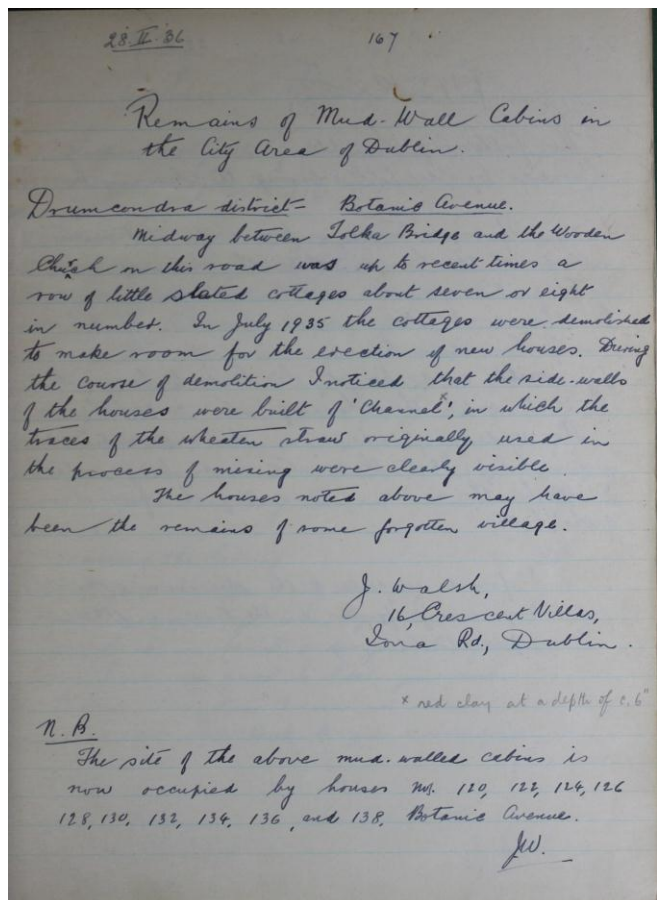 28.II.36
167
Remains of Mud-Wall Cabins in
the City Area of Dublin.
Drumcondra district - Botanic Avenue.
Midway between Tolka Bridge and the Wooden
Church on this road was up to recent times a
row of little slated cottages about seven or eight
in number. In July 1935 the cottages were demolished
to make room for the erection of new houses. During
the course of demolition I noticed that the side-walls
of the houses were built of 'Channel'ˣ, in which the
traces of the wheaten straw originally used in
the process of mixing were clearly visible.
The houses noted above may have
been the remains of some forgotten village.
J. Walsh,
16, Crescent Villas,
Iona Rd., Dublin.
x red clay at a depth of c. 6"
N.B.
The site of the above mud-walled cabins is
now occupied by houses Nos. 120, 122, 124, 126
128, 130, 132, 134, 136, and 138, Botanic Avenue.
JW.